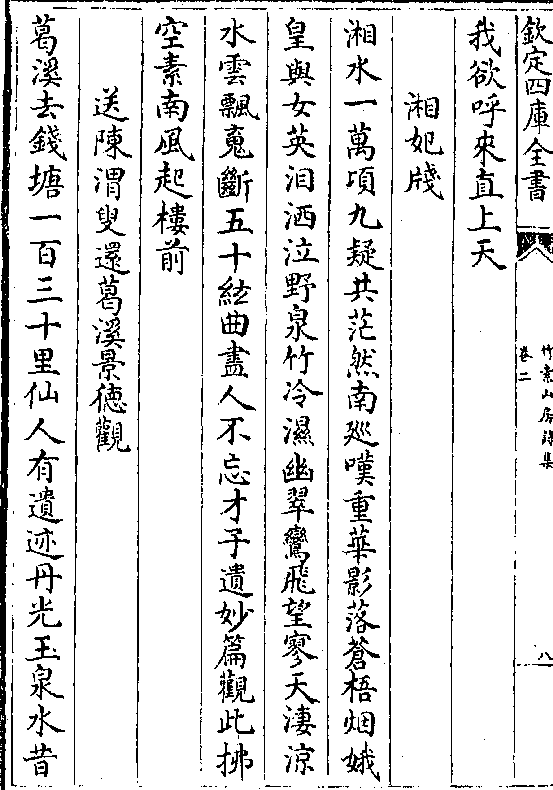 欽定四庫全書
竹素山房詩集
卷二
八
我欲呼來直上天
湘妃牋
湘水一萬頃九疑共茫然南廵嘆重華影落蒼梧烟娥
皇與女英泪洒泣野泉竹冷濕幽翠鸞飛望寥天淒涼
水雲飄䰟斷五十絃曲盡人不忘才子遺妙篇觀此拂
空素南風起樓前
送陳渭叟還葛溪景徳觀
葛溪去錢塘一百三十里仙人有遺迹丹光玉泉水昔